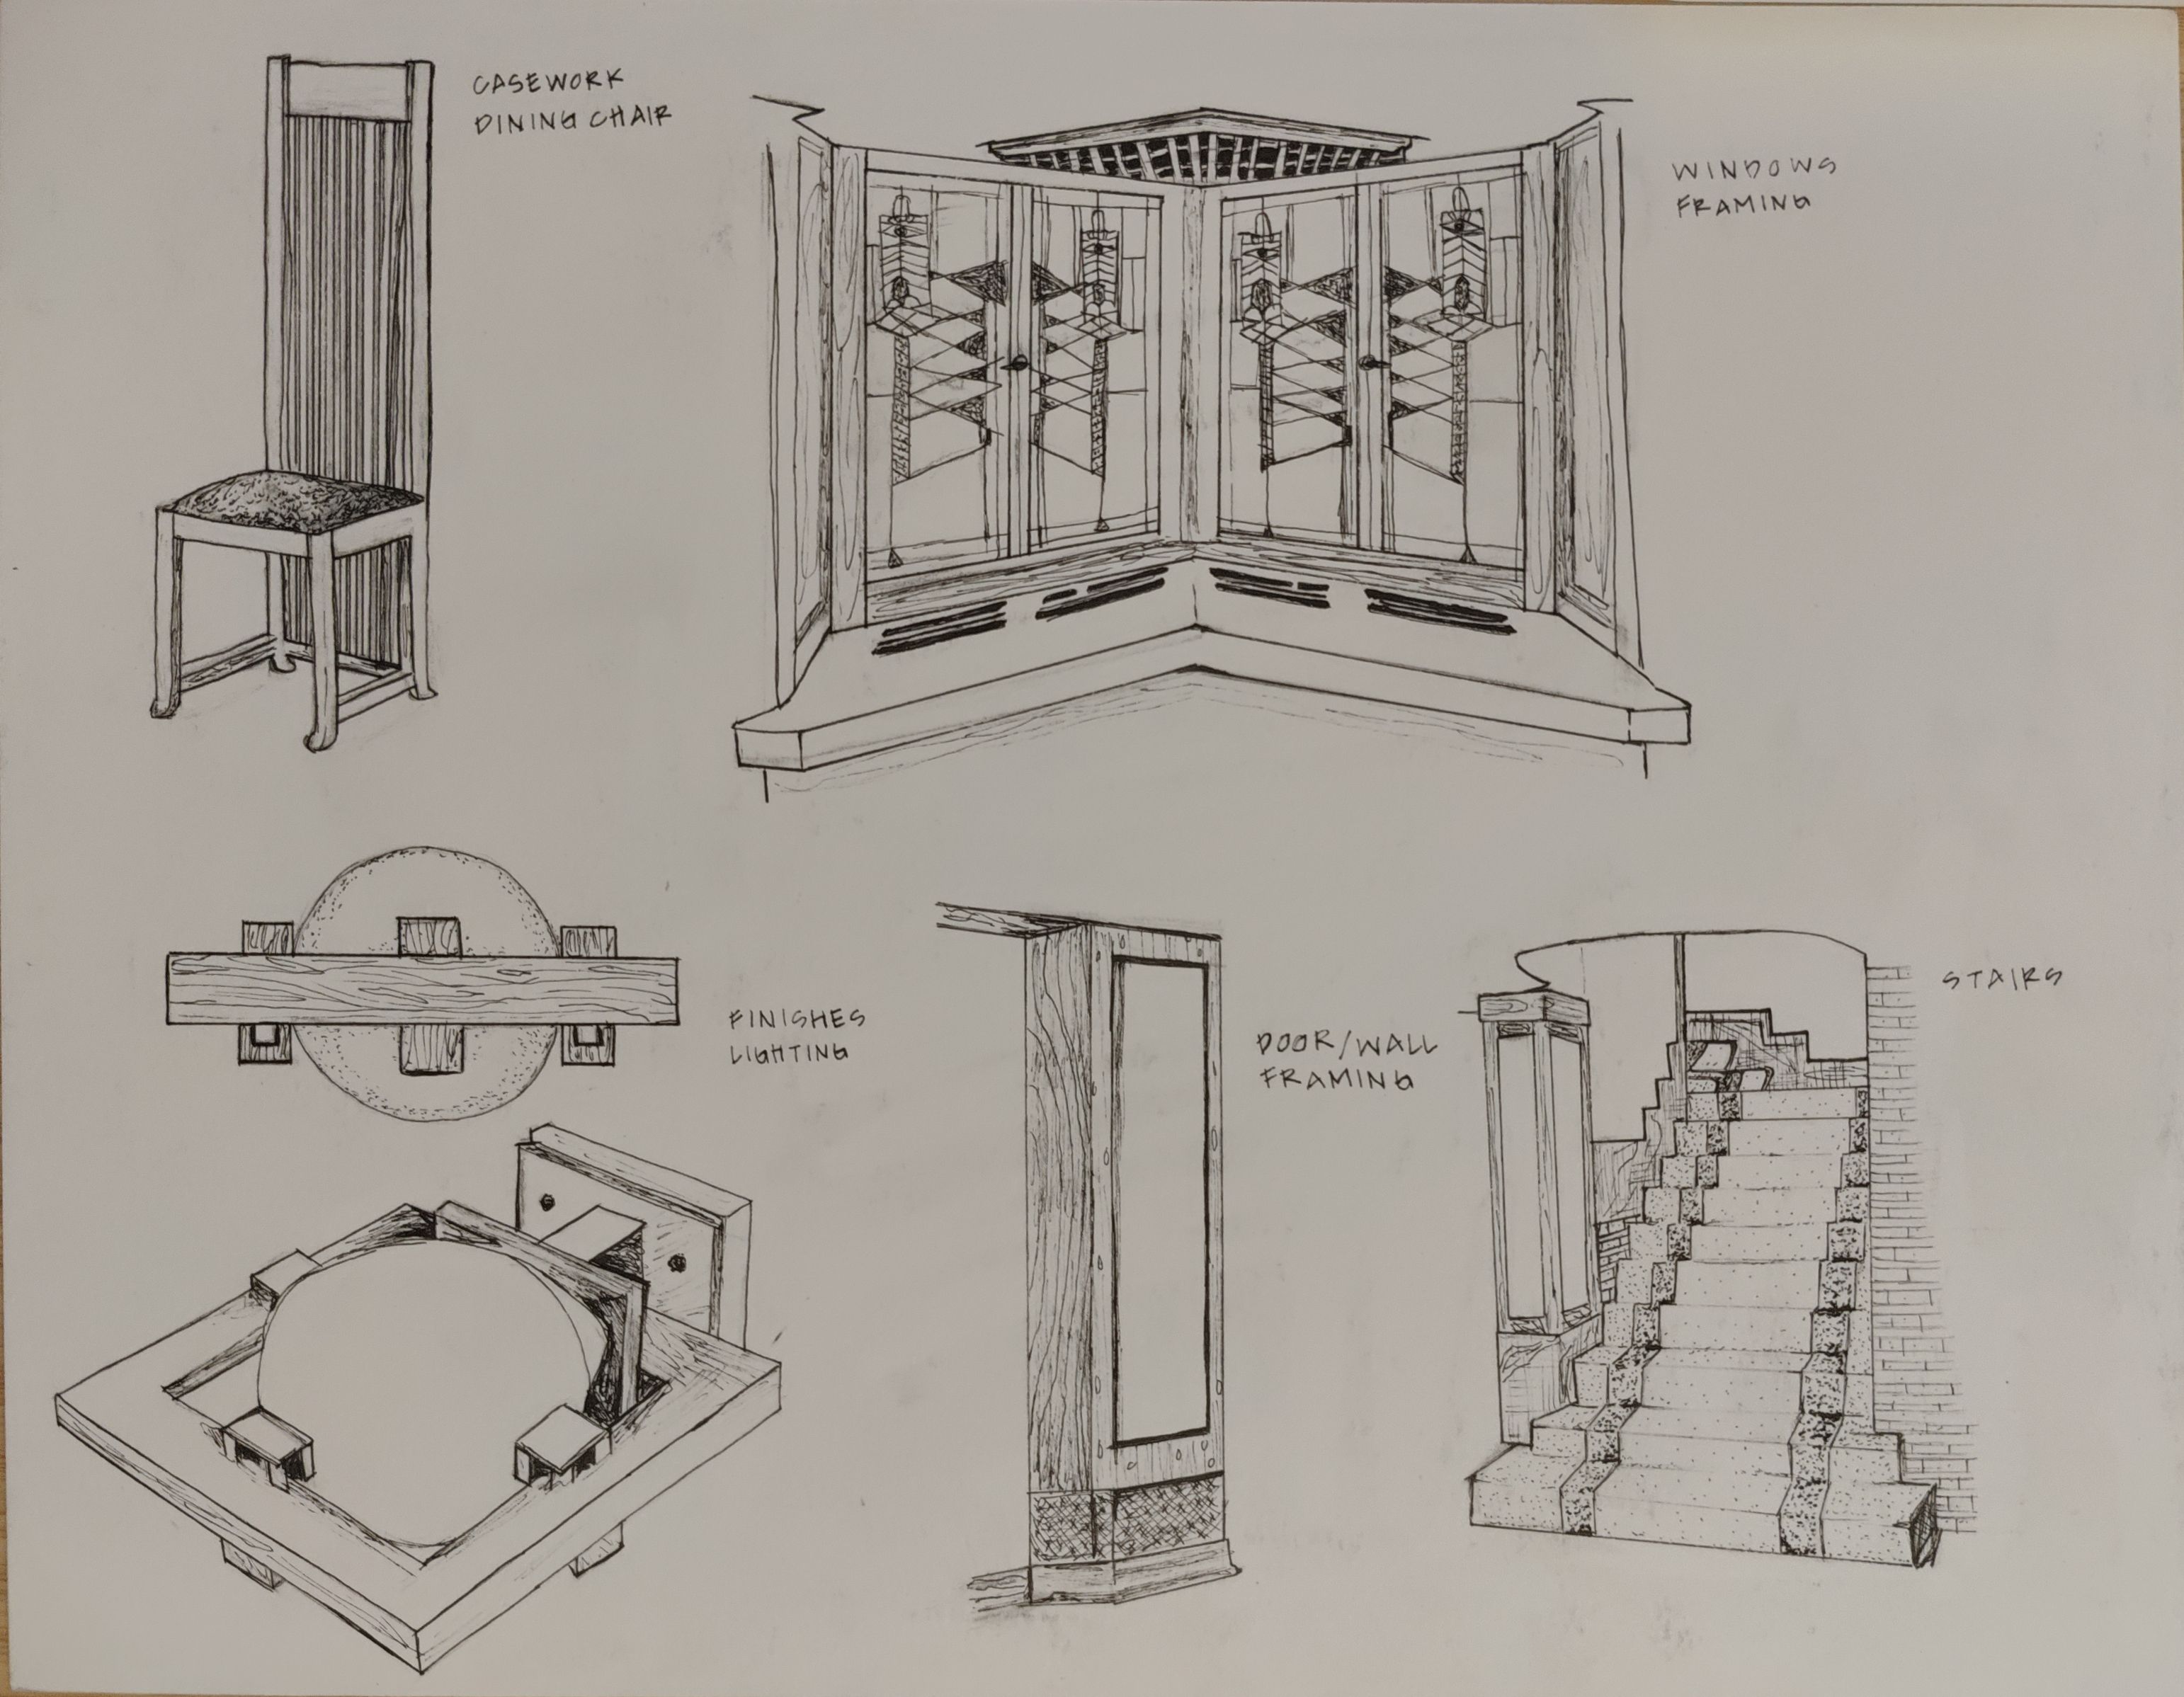 CASEWORK
DINING CHAIR
WINDOWS
FRAMING
FINISHES
LIGHTING
DOOR/WALL
FRAMING
STAIRS